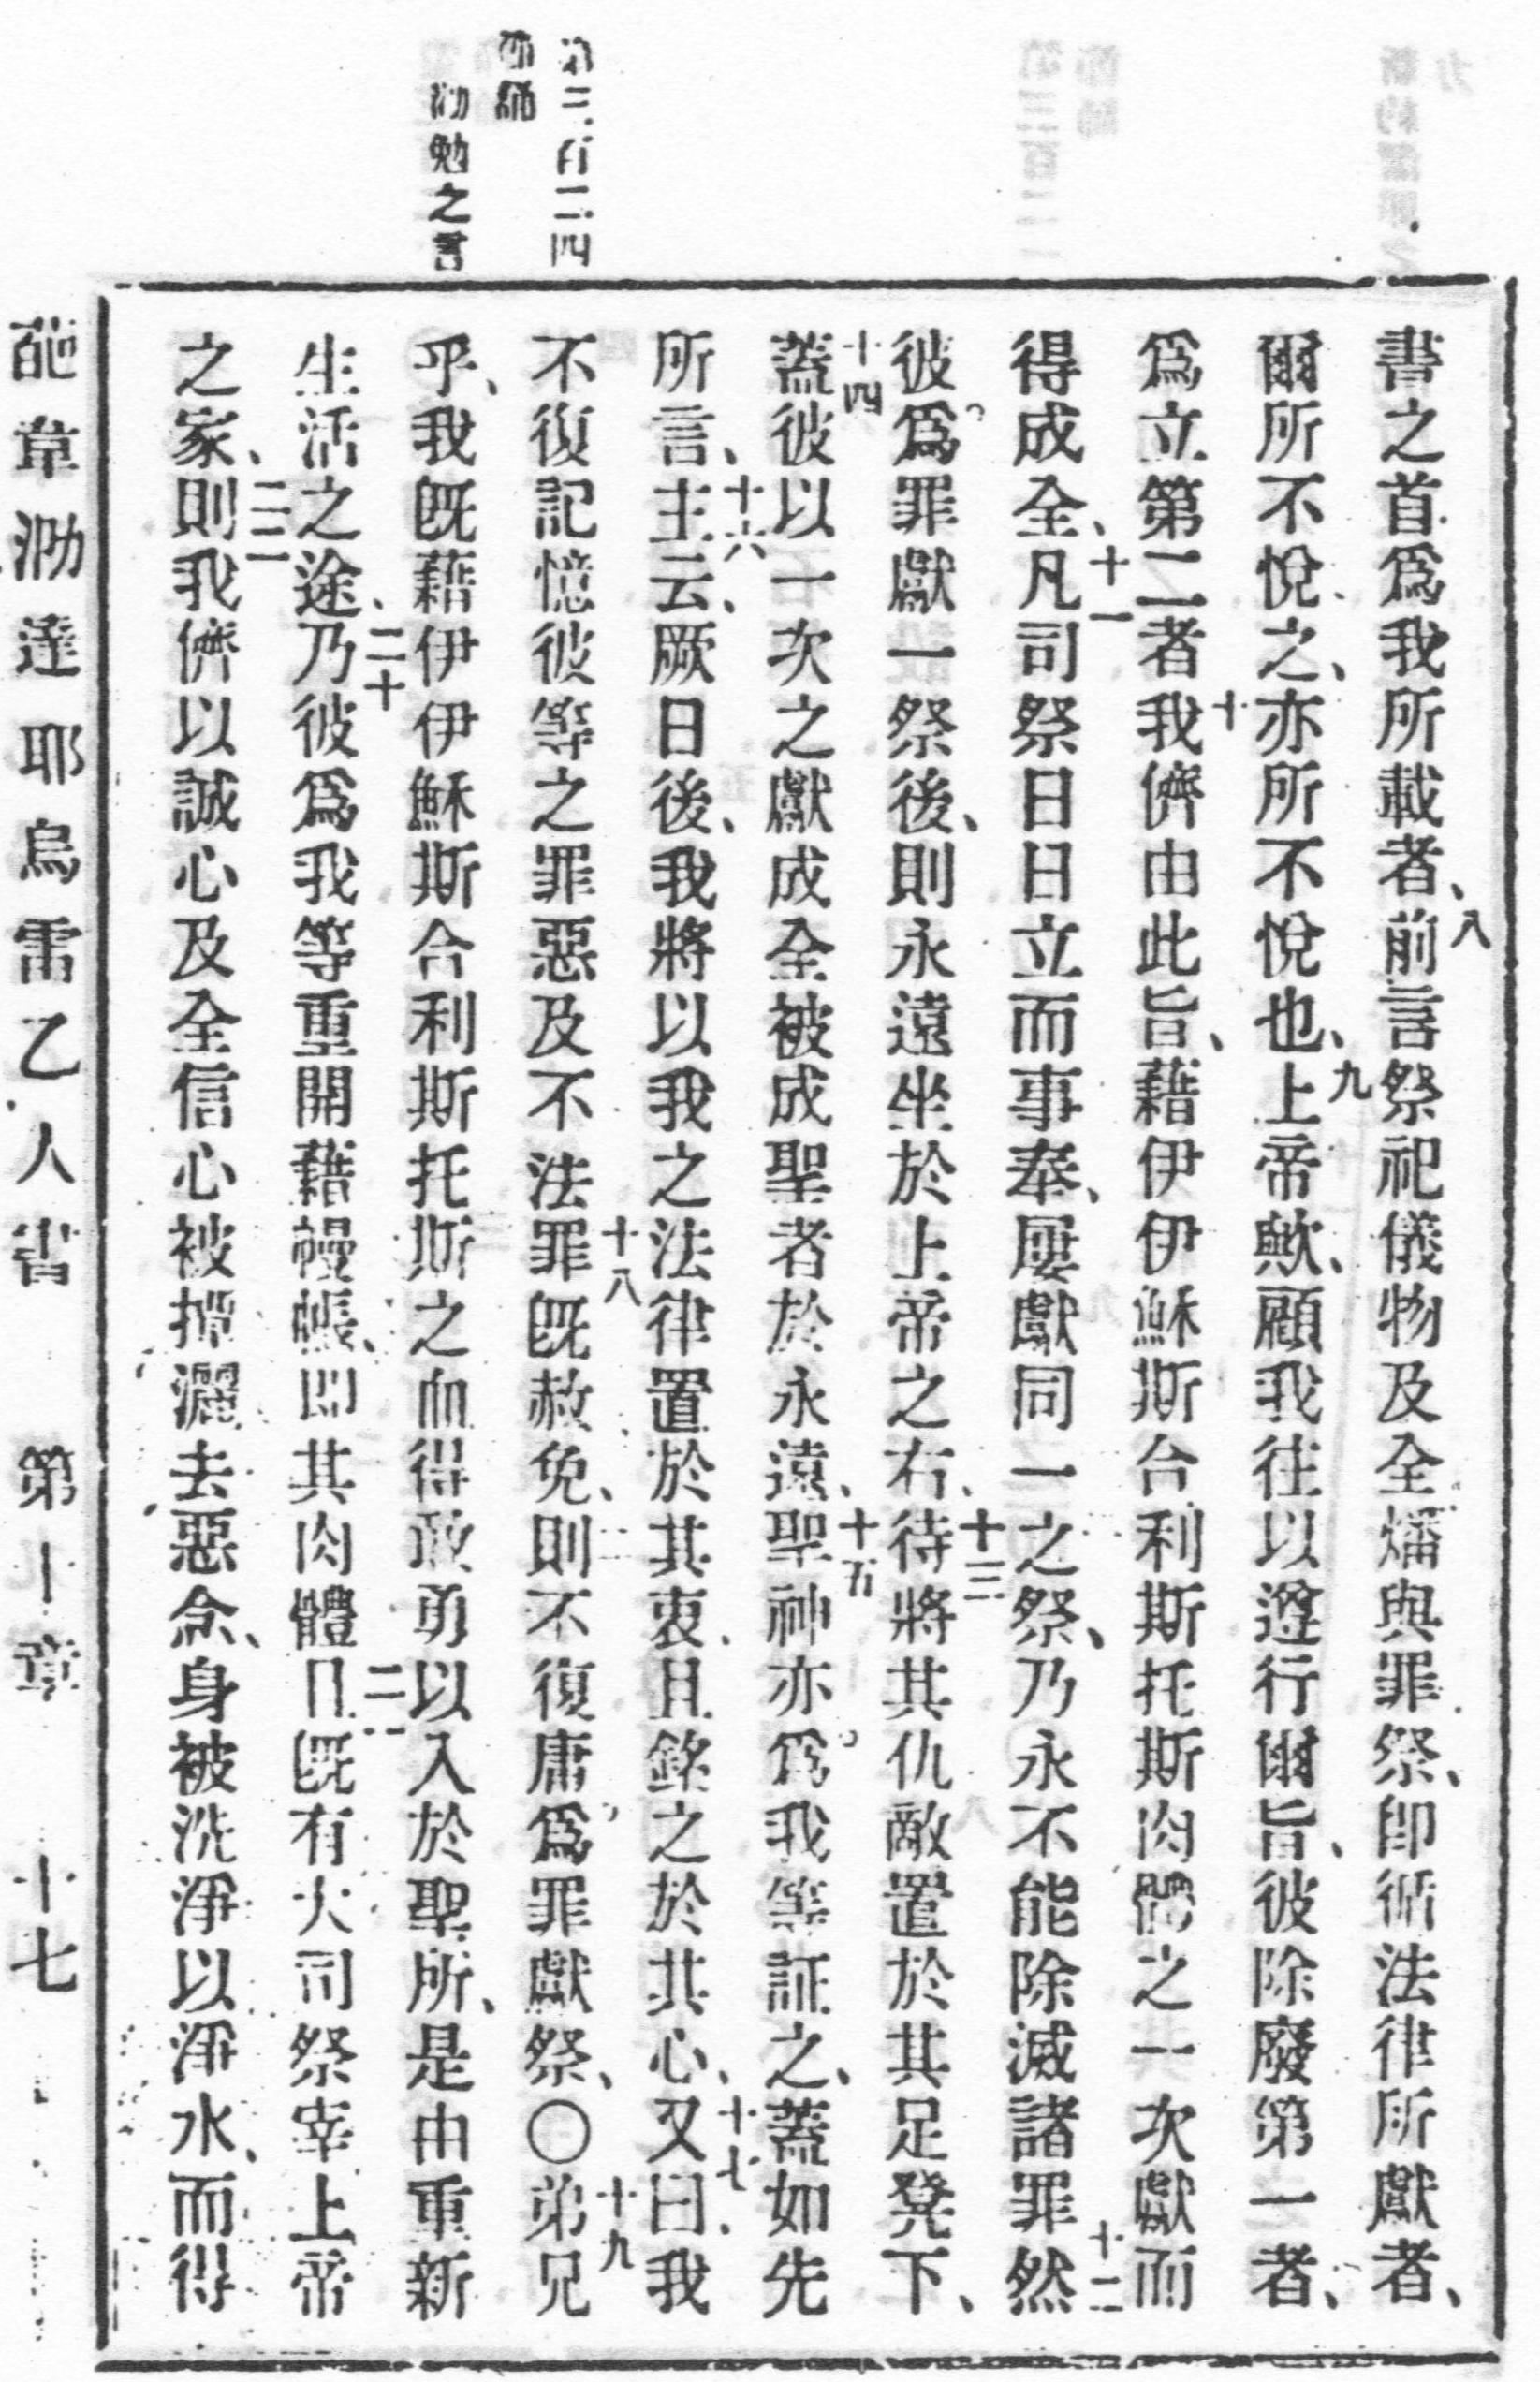 第三百二四
節誦
泐勉之言
書之首爲我所載者、八前言祭祀儀物及全燔與罪祭、卽循法律所獻者、
爾所不悅、之、亦所不悅也、九上帝歟、顧我往以遵行爾旨、彼除廢第一者、
爲立第二者十我儕由此旨、藉伊伊穌斯合利斯托斯肉體之一次獻而
得成全、十一凡司祭日日立而事奉、屢獻同一之祭、乃永不能除滅諸罪十二然
彼爲罪獻一祭後、則永遠坐於上帝之右、十三待將其仇敵置於其足凳下、
十四蓋彼以一次之獻成全被成聖者於永遠、十五聖神亦爲我等証之、蓋如先
所言、十六主云、厥日後、我將以我之法律置於其衷、且銘之於其心、十七又曰、我
不復記憶彼等之罪惡及不法十八罪旣赦免、則不復庸爲罪獻祭、〇十九弟兄
乎、我旣藉伊伊穌斯合利斯托斯之血得敢勇以入於聖所、是由重新
生活之途、二十乃彼爲我等重開藉幔帳、卽其肉體二一且旣有大司祭宰上帝
之家、二二則我儕以誠心及全信心被 灑去惡念、身被洗淨以淨水、而得
葩韋泐達耶烏雷乙人書 第十章 十七